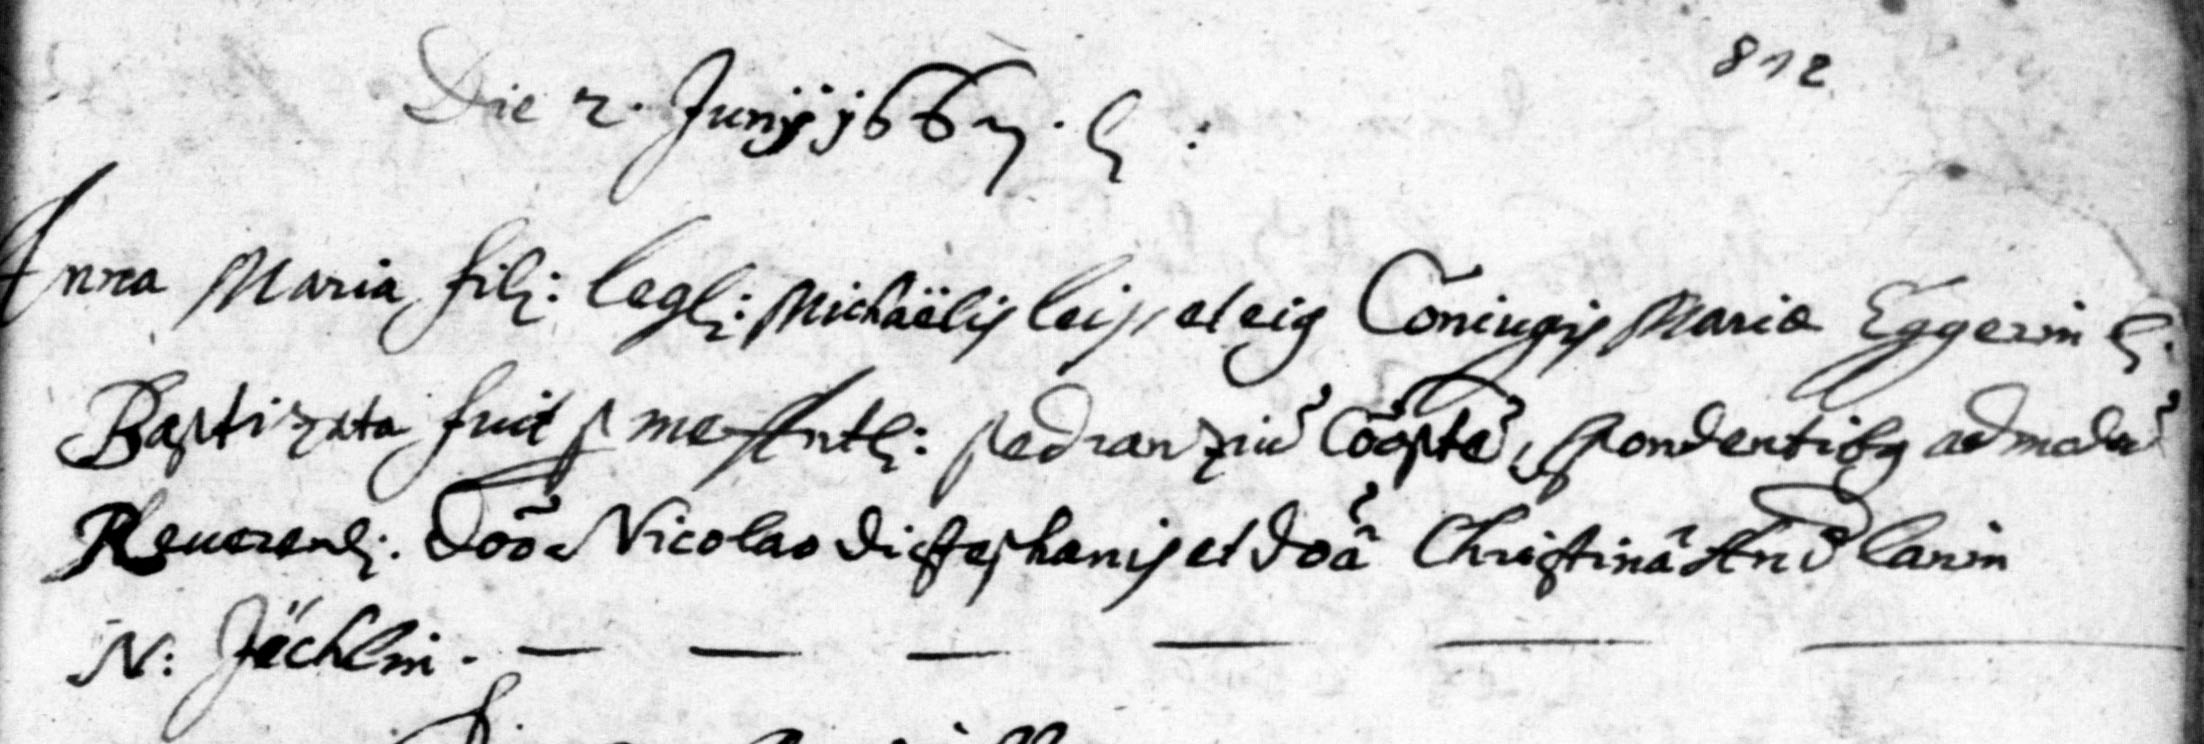 812
Die 2. Junÿ 1667.
Anna Maria fil: legl: Michaëlis leis et eiꝰ Coniugis Mariæ Eggerin
Baptizata fuit p me Antl: pedranziũ Coõptẽ, spondentibꝰ admodũ
Reuerend: Doõ Nicolao di stephanis et doã Christinã Andlarin
N: Jächlin.